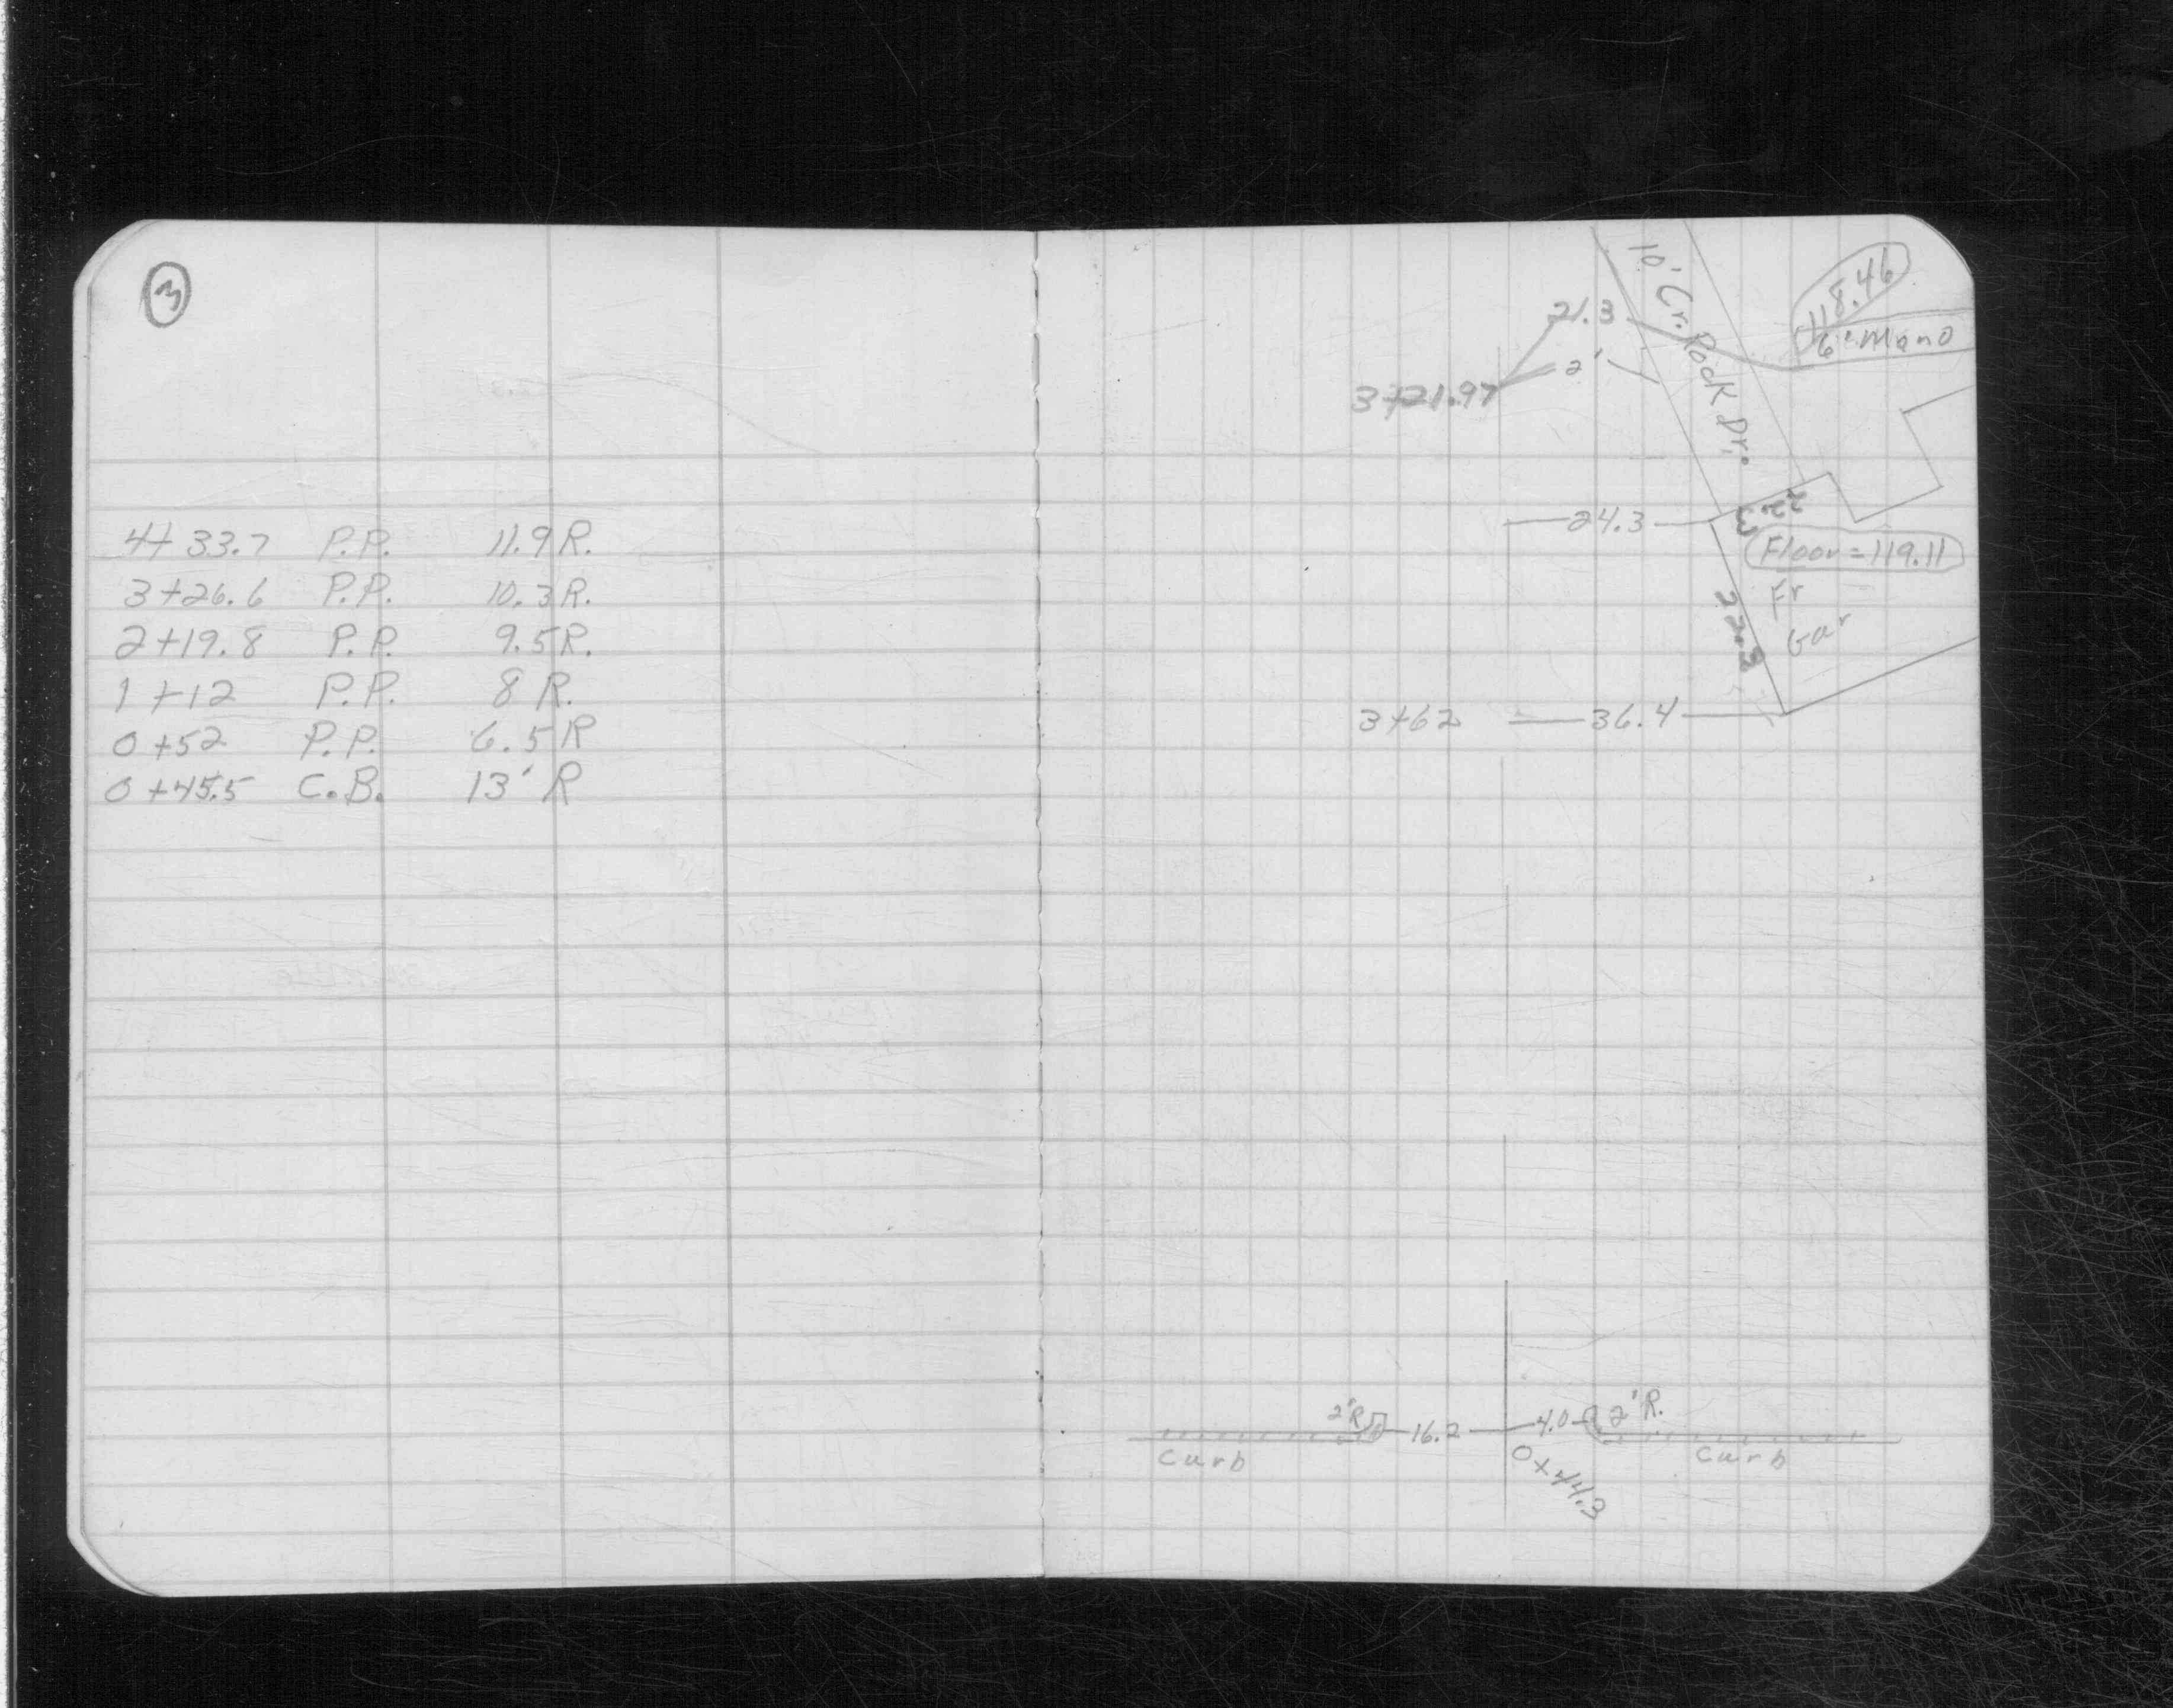 3
4+33.7 P.P. 11.9 R.
3+26.6 P.P. 10.3 R.
2+19.8 P.P. 9.5 R.
1+12 P.P. 8 R.
0+52 P.P. 6.5 R
0+45.5 C.B. 13' R
10' Cr. Rock Dr.
118.46
21.3
6" Mano
2'
3+21.97
22.3
24.3
Floor = 119.11
Fr
Gar
22.3
3+62 36.4
2'R 16.2 4.0 2'R.
Curb 0+44.3 Curb